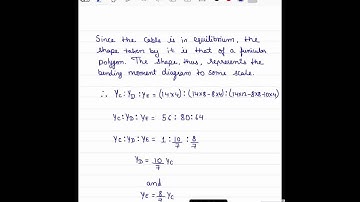 Since the cable is in equilibrium, the
shape taken by it is that of a funicular
polygon. The shape, thus, represents the
bending moment diagram to some scale.
∴ y_C : y_D : y_E = (14×4) : (14×8-8×4) : (14×12-8×8-10×4)
y_C : y_D : y_E = 56 : 80 : 64
y_C : y_D : y_E = 1 : 10/7 : 8/7
y_D = 10/7 y_C
and
y_E = 8/7 y_C